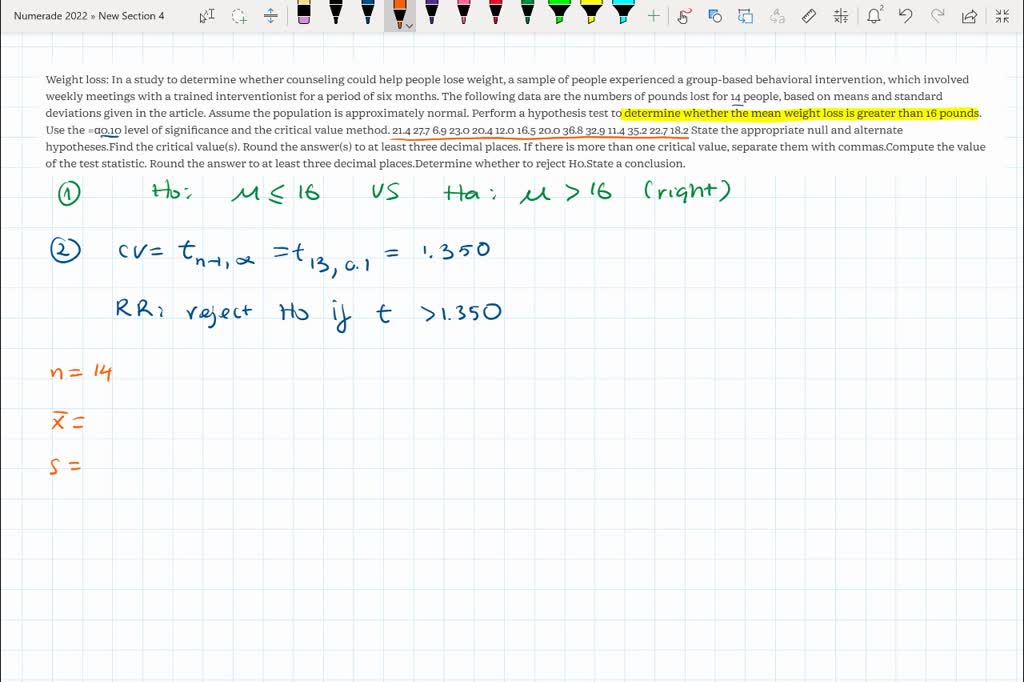 Numerade 2022 » New Section 4
2
Weight loss: In a study to determine whether counseling could help people lose weight, a sample of people experienced a group-based behavioral intervention, which involved
weekly meetings with a trained interventionist for a period of six months. The following data are the numbers of pounds lost for 14 people, based on means and standard
deviations given in the article. Assume the population is approximately normal. Perform a hypothesis test to determine whether the mean weight loss is greater than 16 pounds.
Use the =α0.10 level of significance and the critical value method. 21.4 27.7 6.9 23.0 20.4 12.0 16.5 20.0 36.8 32.9 11.4 35.2 22.7 18.2 State the appropriate null and alternate
hypotheses.Find the critical value(s). Round the answer(s) to at least three decimal places. If there is more than one critical value, separate them with commas.Compute the value
of the test statistic. Round the answer to at least three decimal places.Determine whether to reject H0.State a conclusion.
① Ho: μ ≤ 16 VS Ha: μ > 16 (right)
② CV = t n-1, α = t 13, 0.1 = 1.350
RR: reject Ho if t > 1.350
n = 14
x̄ =
s =